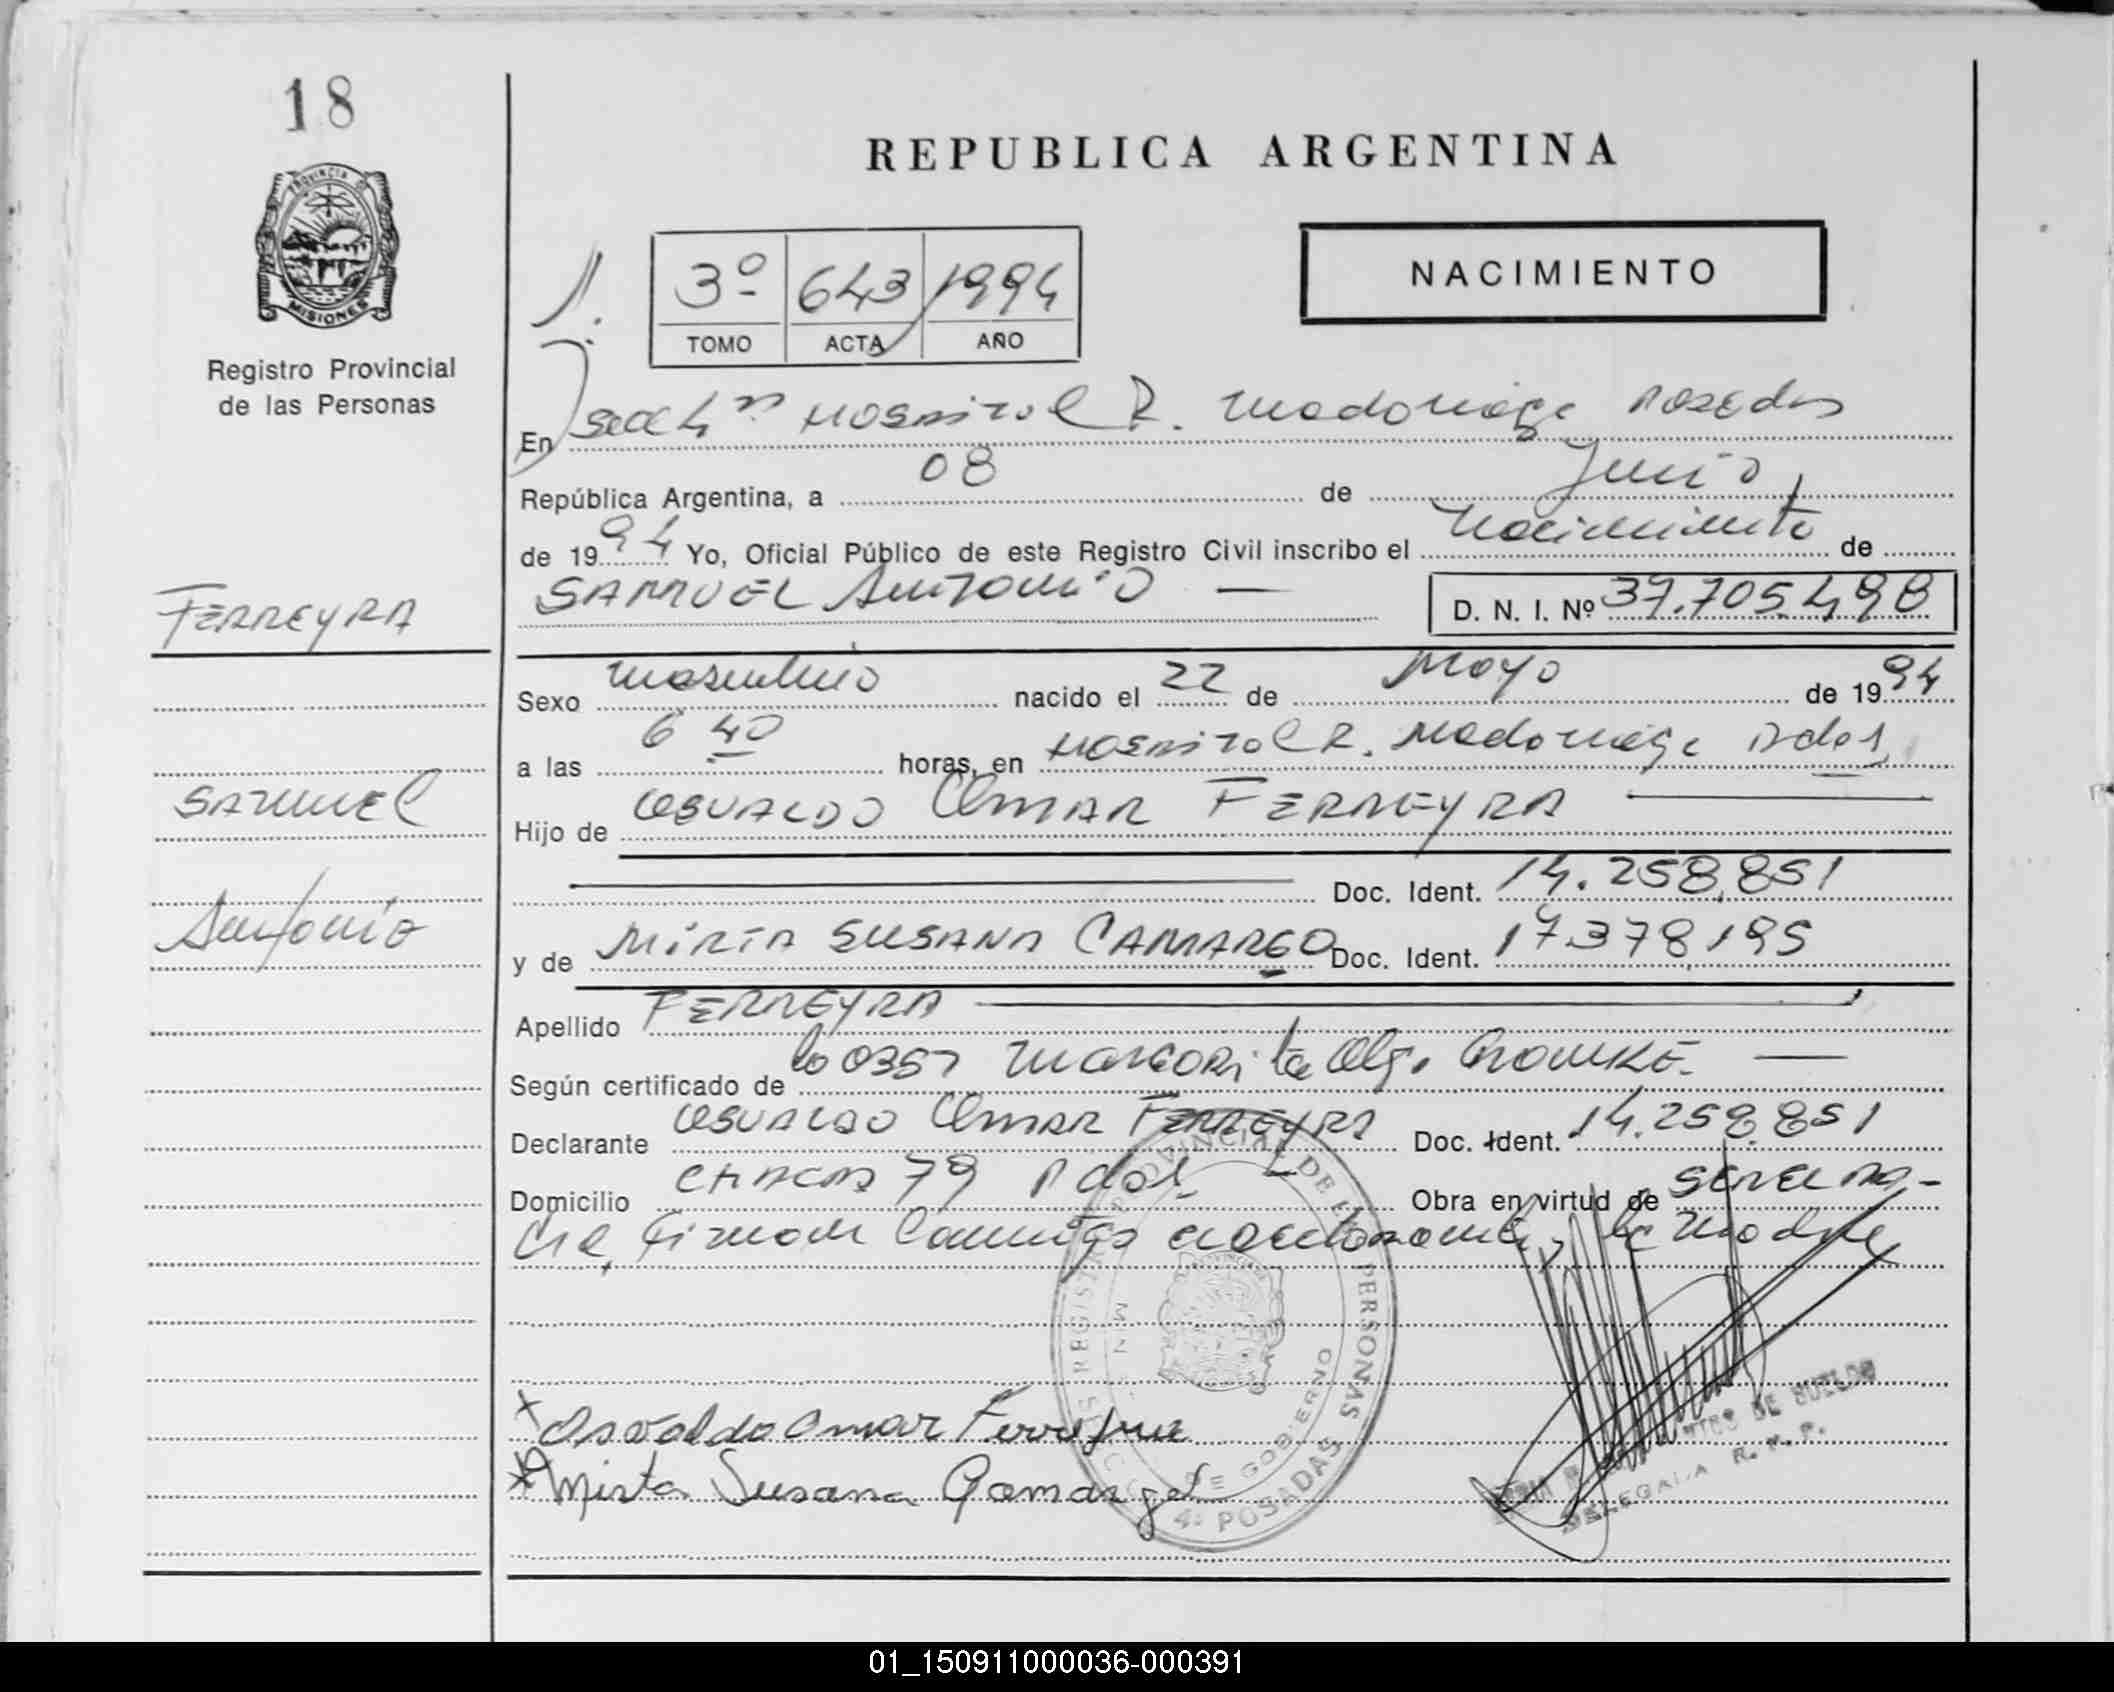 18
REPUBLICA ARGENTINA
PROVINCIA DE
MISIONES
Registro Provincial
de las Personas
NACIMIENTO
3º 643 1994
TOMO ACTA AÑO
En Secc 4ª Hospital R. Madariaga Posadas
República Argentina, a 08 de Junio
de 1994 Yo, Oficial Público de este Registro Civil inscribo el Nacimiento de
SAMUEL Antonio — D. N. I. Nº 37.705.498
FERREYRA
Sexo masculino nacido el 22 de Mayo de 1994
a las 6 40 horas, en Hospital R. Madariaga Pdas
SAMUEL
Hijo de OSVALDO OMAR FERREYRA
Doc. Ident. 14.258.851
Antonio
y de MIRTA SUSANA CAMARGO Doc. Ident. 17.378.195
Apellido FERREYRA
Según certificado de Margarita Olga
Declarante OSVALDO OMAR FERREYRA Doc. Ident. 14.258.851
Domicilio CHACRA 79 Pdas Obra en virtud de SER EL PA-
dre, Firman Conmigo el declarante y la Madre
REGISTRO PROVINCIAL DE LAS PERSONAS
DE GOBIERNO
4ª POSADAS
Osvaldo Omar Ferreyra
Mirta Susana Camargo
DELEGADA R. P. P.
01_150911000036-000391